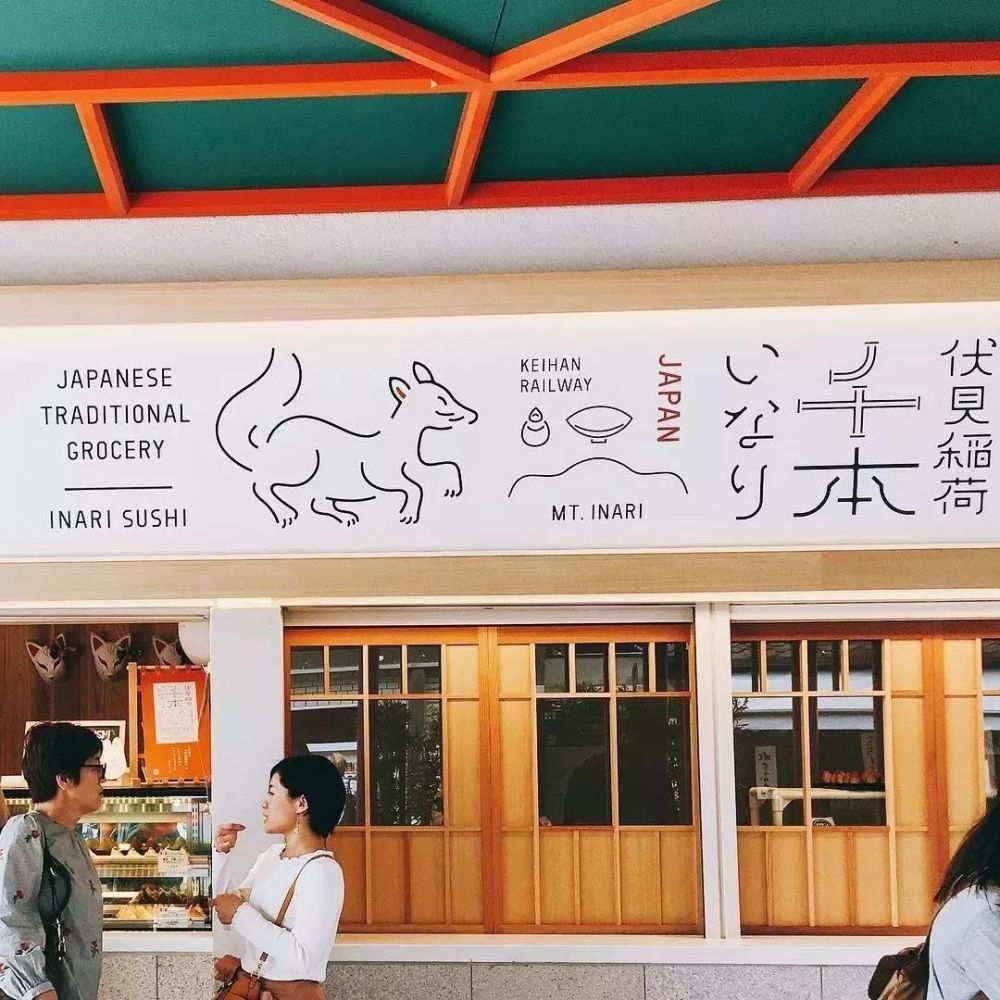 JAPANESE
TRADITIONAL
GROCERY
INARI SUSHI
KEIHAN
RAILWAY
MT. INARI
JAPAN
伏見稲荷
千本
いなり